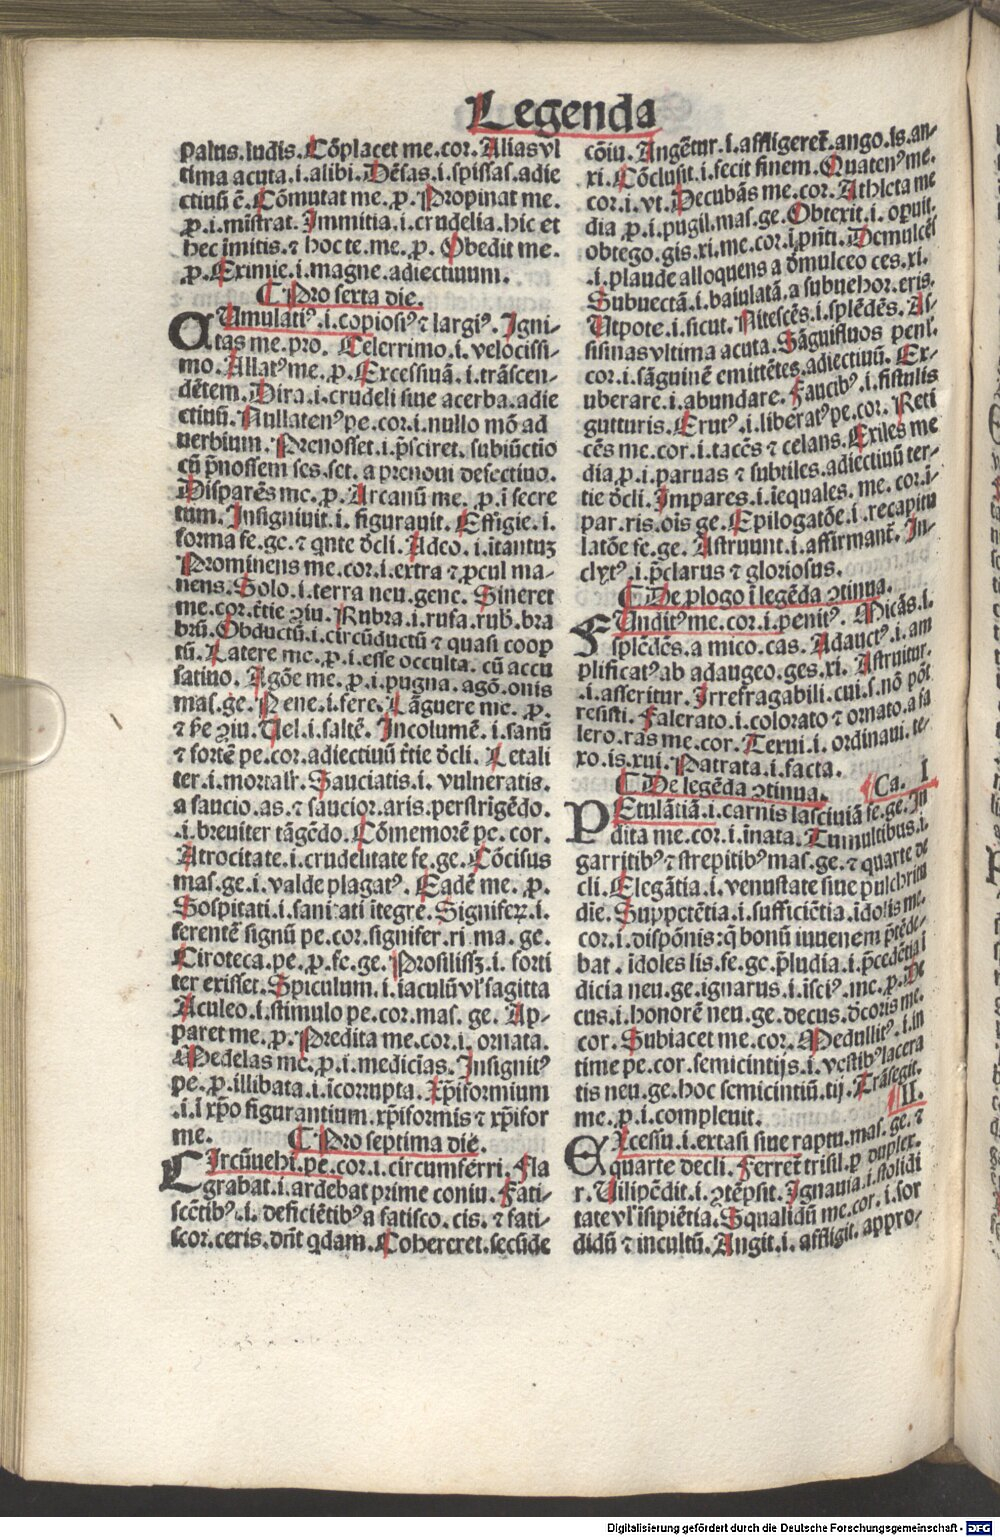 Legenda
palus.ludis.Cõplacet me.cor.Alias vl
tima acuta.i.alibi.Dẽsas.i.spissas.adie
ctiuũ ẽ.Cõmutat me.ꝓ.Propinat me.
ꝓ.i.mĩstrat.Immitia.i.crudelia.hic et
hec ĩmitis.⁊ hoc te.me.ꝓ.Obedit me.
ꝓ.Eximie.i.magne.adiectiuum.
¶Pro sexta die.
AUmulatiꝰ.i.copiosiꝰ ⁊ largiꝰ.Igni-
tas me.pro.Celerrimo.i.velocissi-
mo.Allatꝰ me.ꝓ.Excessiuã.i.trãscen-
dẽtem.Dira.i.crudeli siue acerba.adie
ctiuũ.Nullatenꝰ pe.cor.i.nullo mõ ad
uerbium.Prenosset.i.p̃sciret.subiũctio
cũ p̃nossem ses.set.a prenoui defectiuo.
Disparẽs me.ꝓ.Arcanũ me.ꝓ.i secre
tum.Insigniuit.i.figurauit.Effigie.i.
forma fe.ge.⁊ qnte d̃cli.Adeo.i.ĩtantuꝫ
Prominens me.cor.i.extra ⁊ ꝓcul ma-
nens.Solo.i.terra neu.gene.Sineret
me.cor.t̃tie ꝯiu.Rubra.i.rufa.rub̃.bra
brũ.Obductũ.i.circũductũ ⁊ quasi coop
tũ.Latere me.ꝓ.i.esse occulta.cũ accu
satiuo.Agõe me.ꝓ.i.pugna.agõ.onis
mas.ge.Pene.i.fere.Lãguere me.ꝓ.
⁊ ẽ ꝯiu.Uel.i.saltẽ.Incolumẽ.i.sanũ
⁊ fortẽ pe.cor.adiectiuũ t̃tie d̃cli.Letali
ter.i.mortalr̃.Sauciatis.i.vulneratis.
a saucio.as.⁊ saucior.aris.perstrigẽdo.
.i.breuiter tãgẽdo.Cõmemorẽ pe.cor.
Atrocitate.i.crudelitate fe.ge.Cõcisus
mas.ge.i.valde plagatꝰ.Eadẽ me.ꝓ.
Sospitati.i.sanitati ĩtegre.Signifeꝝ.i.
ferentẽ signũ pe.cor.signifer.ri ma.ge.
Ciroteca.pe.ꝓ.fe.ge.Prosilissꝫ.i.forti
ter exisset.Spiculum.i.iaculũ vl'sagitta
Aculeo.i.stimulo pe.cor.mas.ge.Ap-
paret me.ꝓ.Predita me.cor.i.ornata.
Medelas me.ꝓ.i.medicĩas.Insignitꝰ
pe.ꝓ.illibata.i.ĩcorrupta.Xp̃iformium
.i.ĩ xp̃o figurantium.xp̃iformis ⁊ xp̃ifor
me.
¶Pro septima die.
CIrcũuehi.pe.cor.i.circumferri.Fla
grabat.i.ardebat prime coniu.Fati-
scẽtibꝰ.i.deficiẽtibꝰ a fatisco.cis.⁊ fati-
scor.ceris.dñt qdam.Cohereret.secũde
cõiu.Angẽtur.i.affligeret̃.ango.is.an-
xi.Cõclusit.i.fecit finem.Quatenꝰ me.
cor.i.vt.Decubãs me.cor.Athleta me
dia ꝓ.i.pugil.mas.ge.Obtexit.i.opuit.
obtego.gis.xi.me.cor.i p̃nti.Demulcẽs
.i.plaude alloquens a d̃mulceo ces.xi.
Subuectã.i.baiulatã.a subuehor.eris.
Utpote.i.sicut.Nitescẽs.i.splẽdẽs.As-
sisinas vltima acuta.Sãguifluos penl'.
cor.i.sãguinẽ emittẽtes.adiectiuũ.Ex-
uberare.i.abundare.Faucibꝰ.i.fistulis
gutturis.Erutꝰ.i.liberatꝰ pe.cor.Reti
cẽs me.cor.i.tacẽs ⁊ celans.Exiles me
dia.ꝓ.i.paruas ⁊ subtiles.adiectiuũ ter-
tie d̃cli.Impares.i.ĩequales.me.cor.i-
par.ris.ois ge.Epilogatõe.i.recapitu
latõe fe.ge.Astruunt.i.affirmant̃.In-
clytꝰ.i.p̃clarus ⁊ gloriosus.
¶De ꝓlogo ĩ legẽda ꝯtinua.
FUnditꝰ me.cor.i.penitꝰ.Micãs.i.
splẽdẽs.a mico.cas.Adauctꝰ.i.am
plificatꝰ ab adaugeo.ges.xi.Astruitur.
.i.asseritur.Irrefragabili.cui.s.nõ põt
resisti.Falerato.i.colorato ⁊ ornato.a fa
lero.ras me.cor.Texui.i.ordinaui.te-
xo.is.xui.Patrata.i.facta.
¶De legẽda ꝯtinua. ¶Ca. I.
PEtulãtiã.i.carnis lasciuiã fe.ge.In
dita me.cor.i.ĩnata.Tumultibus.i.
garritibꝰ ⁊ strepitibꝰ mas.ge.⁊ quarte de
cli.Elegãtia.i.venustate siue pulchritu
dĩe.Suppetẽtia.i.sufficiẽtia.ĩdolis me.
cor.i.dispõnis:q̃ bonũ iuuenem p̃tẽde-
bat.ĩdoles lis.fe.ge.p̃ludia.i.p̃cedẽtia ĩ
dicia neu.ge.ignarus.i.ĩsciꝰ.me.ꝓ.De
cus.i.honorẽ neu.ge.decus.d̃coris me.
cor.Subiacet me.cor.Medullitꝰ.i.in
time pe.cor.semicintijs.i.vestibꝰ lacera
tis neu.ge.hoc semicintiũ.tij.Trãsegit.
me.ꝓ.i.compleuit. ¶II.
EXcessu.i.extasi siue raptu.mas.ge.⁊
quarte decli.Ferret̃ trisil.ꝓ duplex.
r.Uilipẽdit.i.ꝯtẽpsit.Ignauia.i.stolidi
tate vl'ĩsipiẽtia.Squalidũ me.cor.i.sor
didũ ⁊ incultũ.Angit.i.affligit.appro-
Digitalisierung gefördert durch die Deutsche Forschungsgemeinschaft - DFG